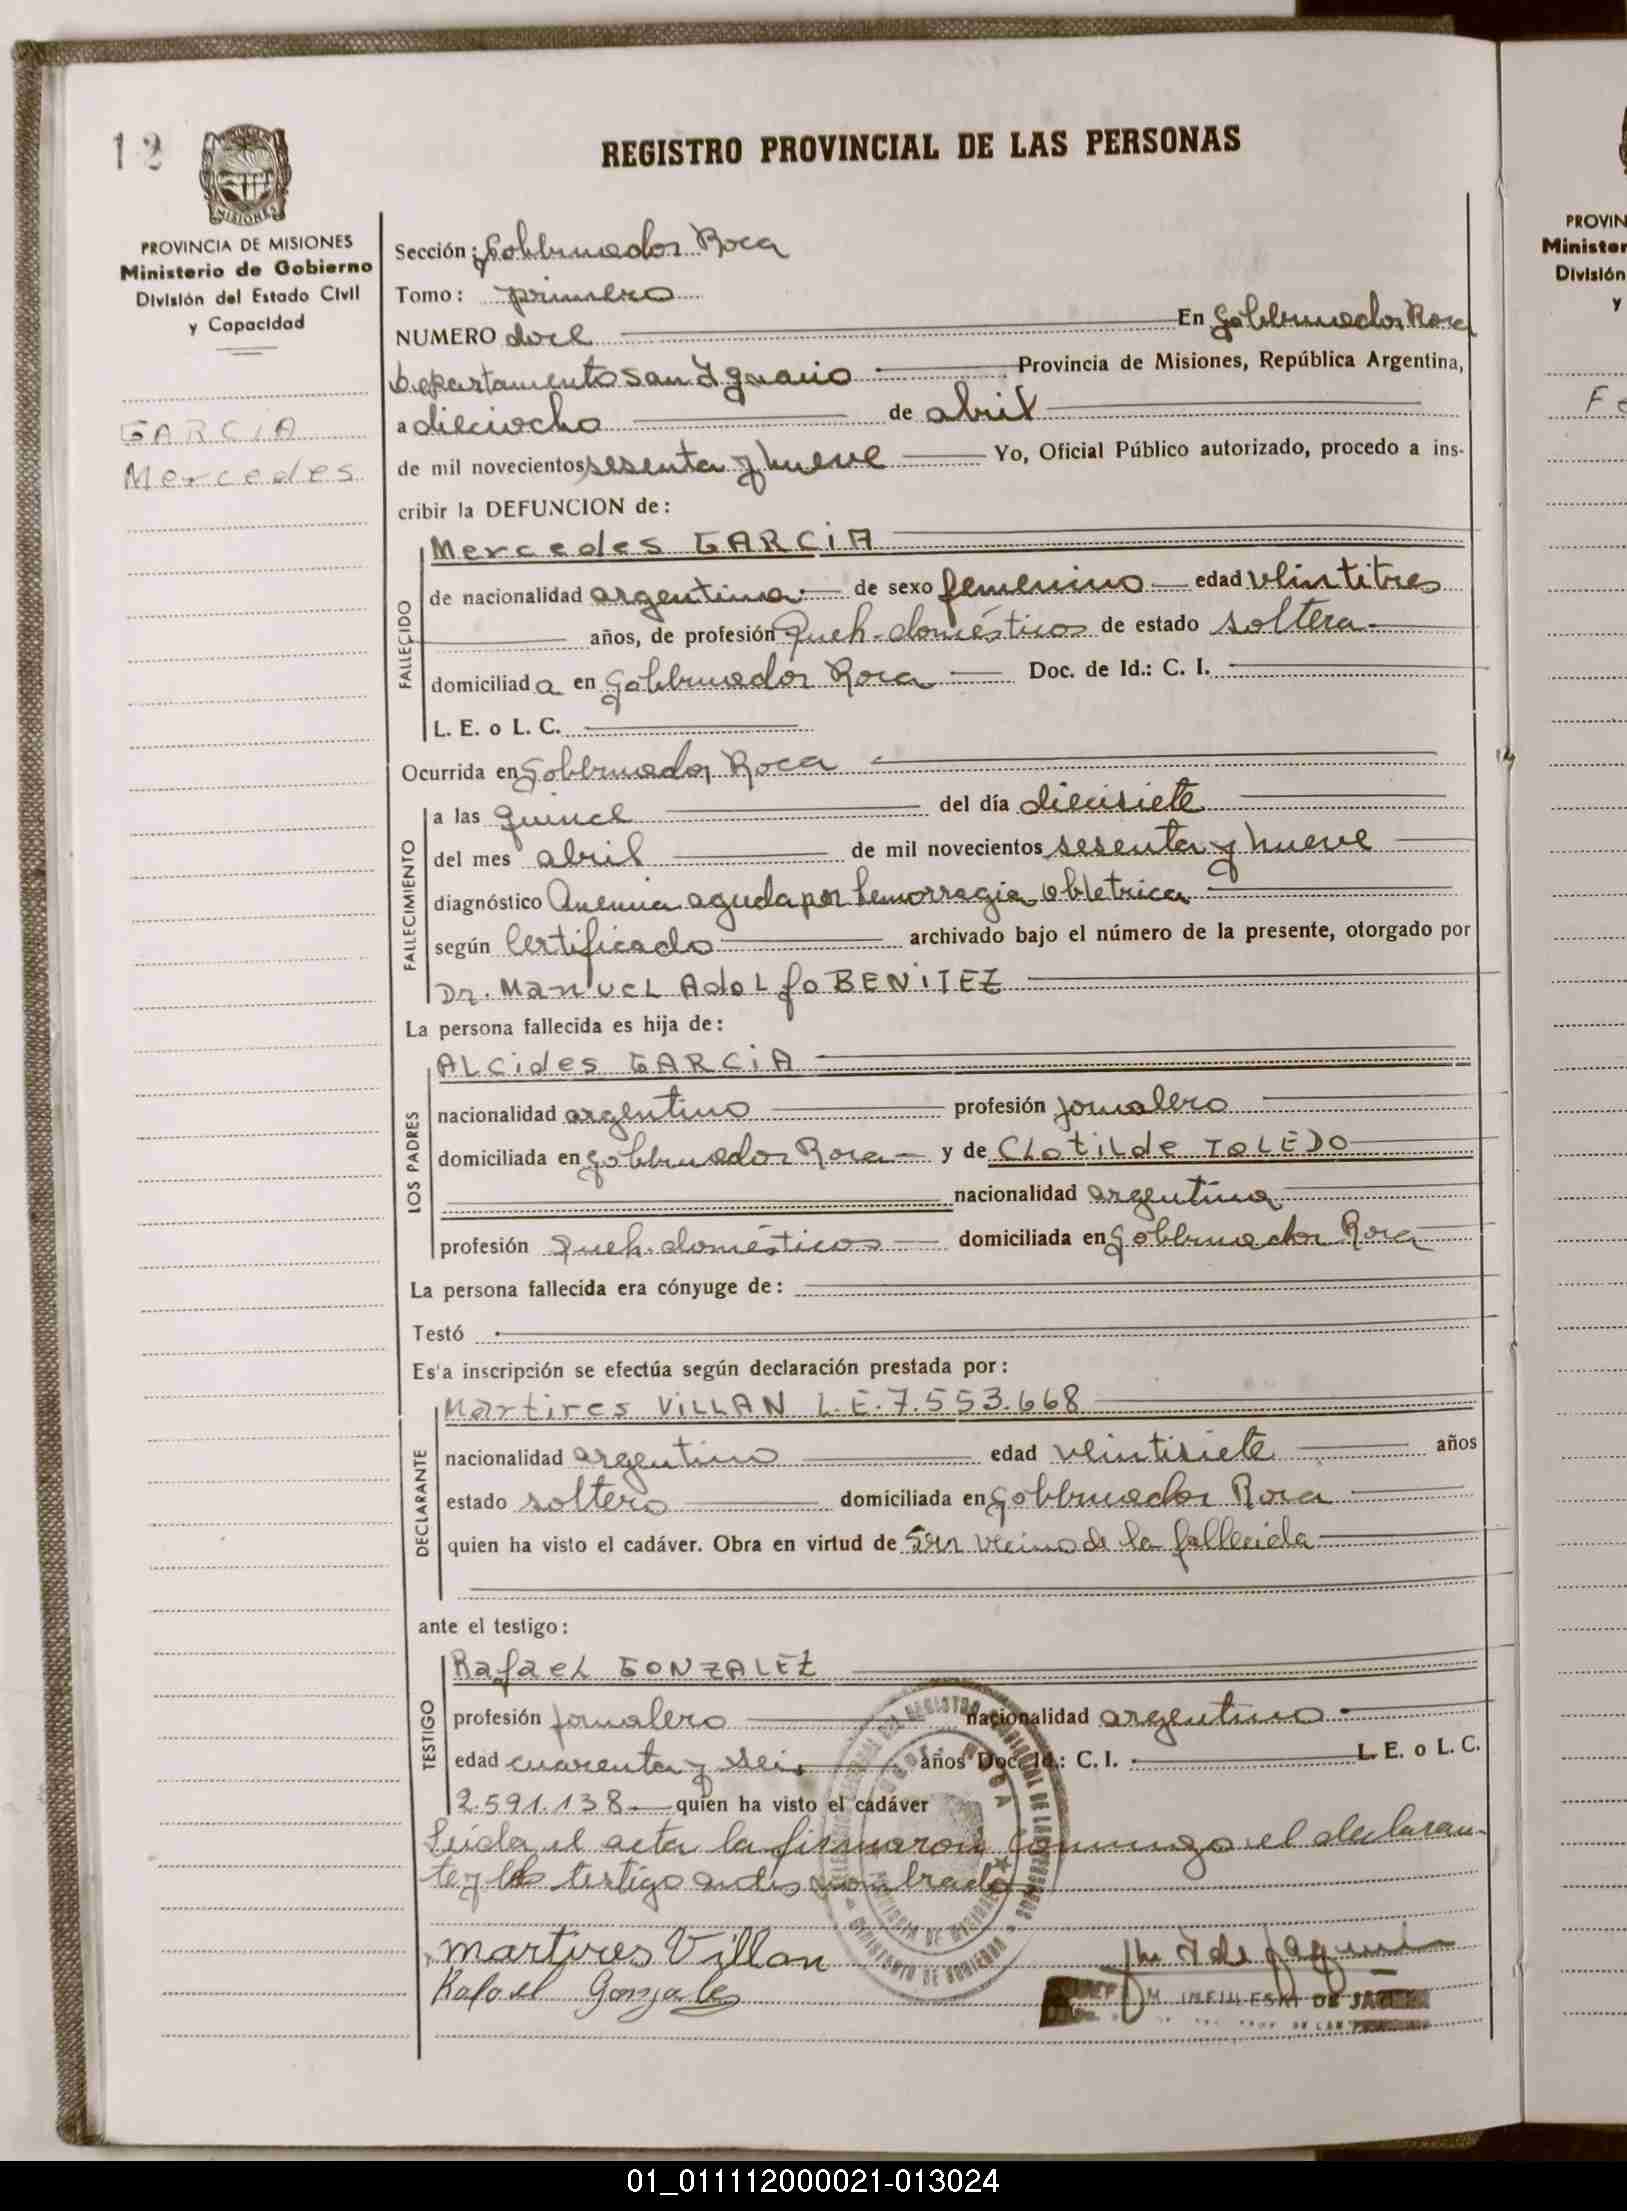 12
MISIONES
REGISTRO PROVINCIAL DE LAS PERSONAS
PROVINCIA DE MISIONES
Ministerio de Gobierno
División del Estado Civil
y Capacidad
GARCIA
Mercedes
Sección: Gobernador Roca
Tomo: primero
NUMERO doce En Gobernador Roca
Departamento San Ignacio Provincia de Misiones, República Argentina,
a dieciocho de abril
de mil novecientos sesenta y nueve Yo, Oficial Público autorizado, procedo a ins-
cribir la DEFUNCION de:
FALLECIDO
Mercedes GARCIA
de nacionalidad argentina de sexo femenino edad veintitres
años, de profesión Queh. domésticos de estado soltera
domiciliada en Gobernador Roca Doc. de Id.: C. I.
L. E. o L. C.
Ocurrida en Gobernador Roca
FALLECIMIENTO
a las quince del día diecisiete
del mes abril de mil novecientos sesenta y nueve
diagnóstico Anemia aguda por hemorragia obletrica
según Certificado archivado bajo el número de la presente, otorgado por
Dr. Manuel Adolfo BENITEZ
La persona fallecida es hija de:
LOS PADRES
ALcides GARCIA
nacionalidad argentino profesión jornalero
domiciliada en Gobernador Roca y de CLotiLde TOLEDO
nacionalidad argentina
profesión Queh. domésticos domiciliada en Gobernador Roca
La persona fallecida era cónyuge de:
Testó
Es'a inscripción se efectúa según declaración prestada por:
DECLARANTE
Martires VILLAN L.E. 7.553.668
nacionalidad argentino edad veintisiete años
estado soltero domiciliada en Gobernador Roca
quien ha visto el cadáver. Obra en virtud de Ser vecino de la fallecida
ante el testigo:
TESTIGO
Rafael GONZALEZ
profesión jornalero nacionalidad argentino
edad cuarenta y seis años Doc. Id.: C. I. L. E. o L. C.
2.591.138 quien ha visto el cadáver
Leida el acta la firmaron conmigo el declaran-
te y el testigo antes nombrado
martires Villan
Rafael Gonzales
DE LAS
PROVIN
Minister
División
y
01_011112000021-013024